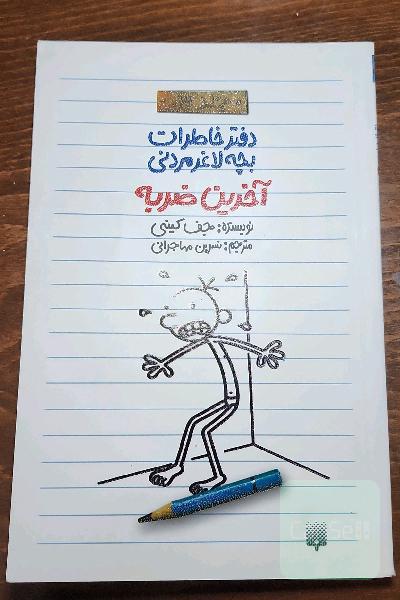 دفتر خاطرات
بچه لاغر مردنی
آخرین ضربه
نویسنده: جف کینی
مترجم: نسرین مهاجرانی